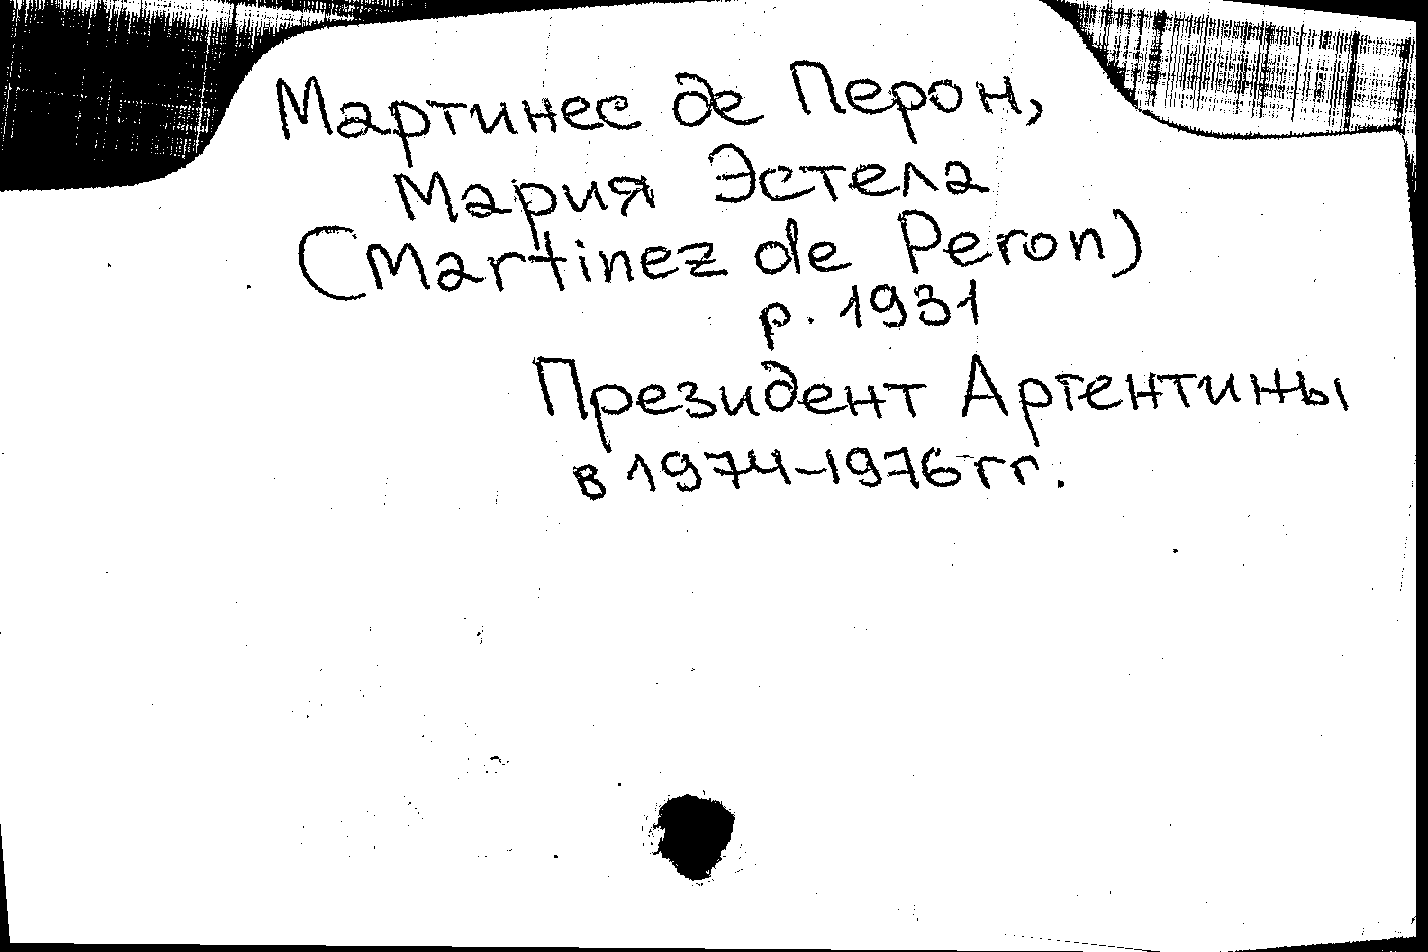 Мартинес де Перон,
Мария Эстела
(Martinez de Peron)
р. 1931
Президент Аргентины
в 1974-1976 гг.